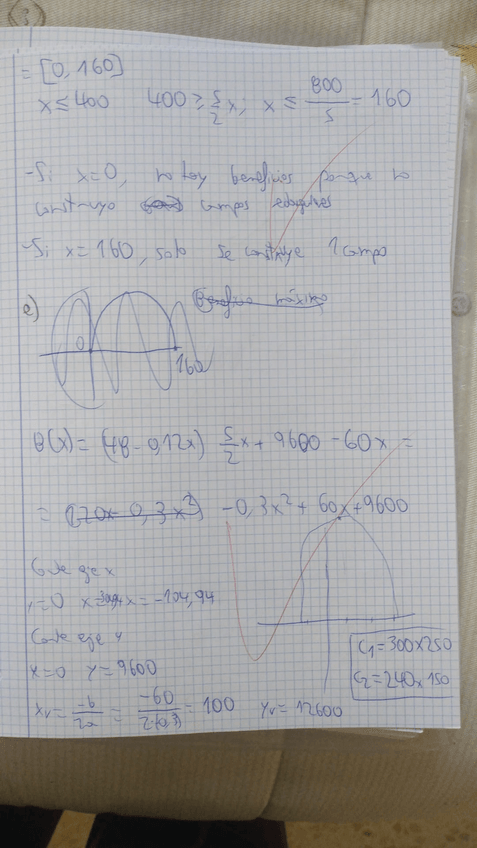 3
= [0, 160]
x ≤ 400 400 ≥ 5/2 x; x ≤ 800/5 = 160
- Si x=0, no hay beneficios porque no
construyo campos
- Si x=160, solo se construye 1 campo
e) Beneficio máximo
0 160
B(x) = (48 - 0,12x) 5/2 x + 9600 - 60x =
= (120x - 0,3x²) -0,3x² + 60x + 9600
Corte eje x
y=0 x = -104,94
Corte eje y
x=0 y=9600
C1=300x250
C2=240x150
xv = -b/2a = -60/2·(-0,3) = 100 yv = 12600